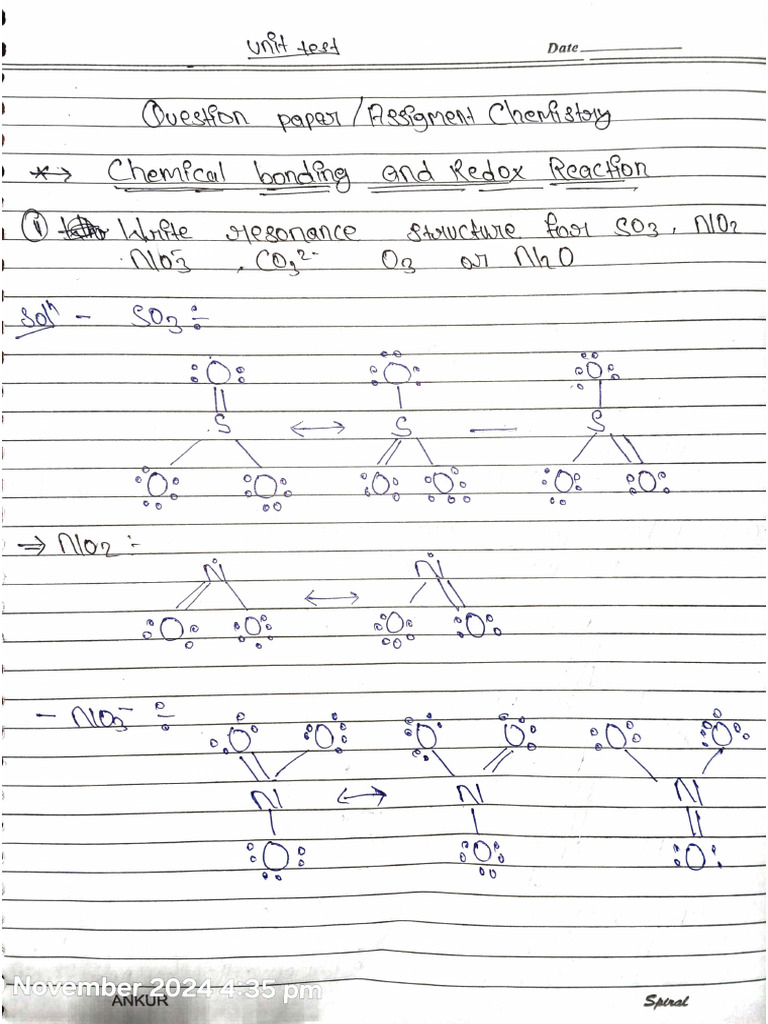 Unit test
Date
Question paper / Assigment Chemistry
* → Chemical bonding and Redox Reaction
① Write resonance structure for SO3, NO2
NO3⁻, CO3²⁻ O3 or N2O
Solⁿ - SO3 :-
O O O
S ↔ S — S
O O O O O O
⇒ NO2 :-
N ↔ N
O O O O
- NO3⁻ :-
O O O O O O
N ↔ N N
O O O
November 2024 4:35 pm
ANKUR
Spiral